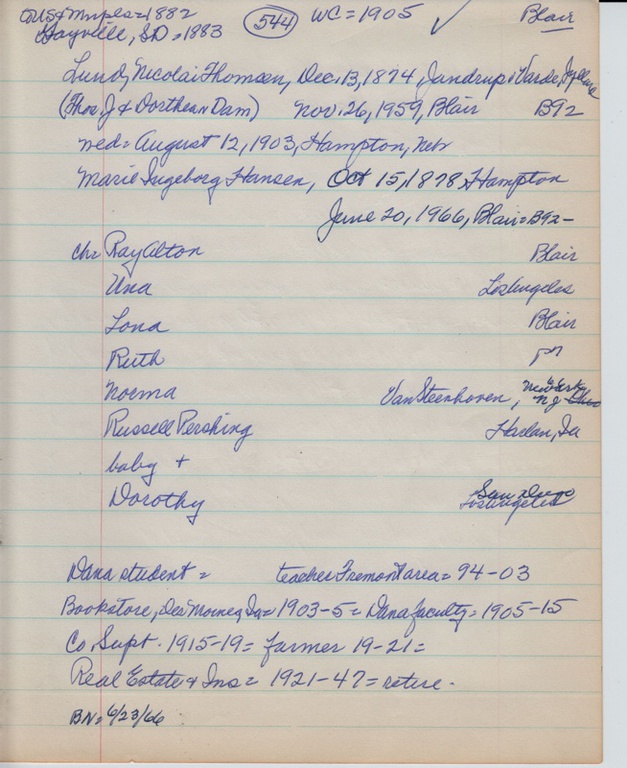 to US & Mnpls = 1882 544 WC = 1905 ✓ Blair
Gayville, SD = 1883
Lund, Nicolai Thomsen, Dec. 13, 1874, Jandrup, Varde, Jylland
(Thos J & Dorthea N Dam) Nov. 26, 1959, Blair B92
med = August 12, 1903, Hampton, Neb
Marie Ingeborg Hansen, Oct 15, 1878, Hampton
June 20, 1966, Blair = B92 -
ch = Ray Alton Blair
Una Los Angeles
Lona Blair
Ruth "
Norma VanSteenhoven, New York NJ
Russell Pershing Harlan, Ia
baby +
Dorothy San Diego Los Angeles
Dana student = teacher Fremont area = 94-03
Bookstore, Des Moines, Ia = 1903-5 = Dana faculty = 1905-15
Co Supt. 1915-19 = farmer 19-21 =
Real Estate & Ins = 1921-47 = retire -
BN = 6/23/66